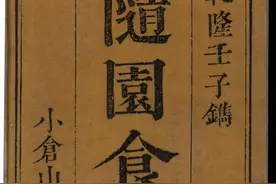 乾隆壬子鐫
隨園食
小倉山